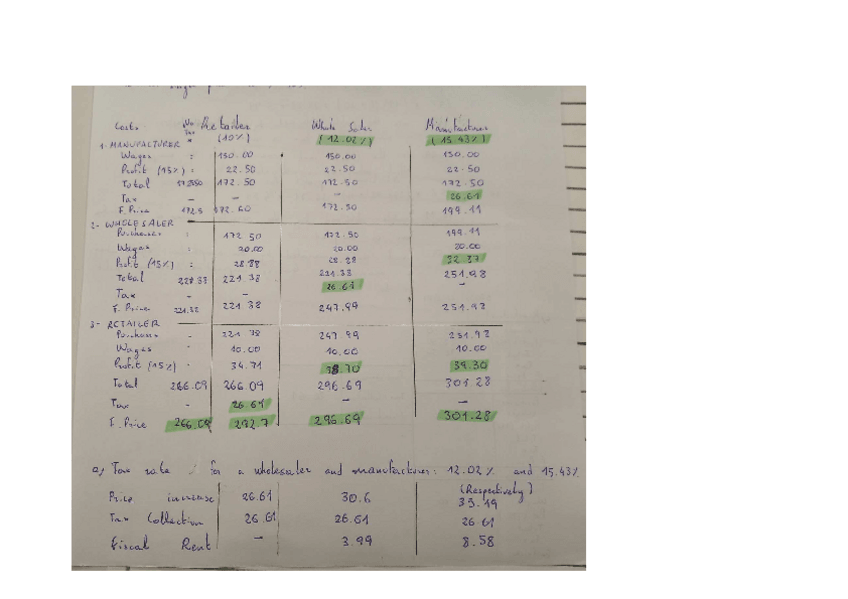 Costs No Tax Retailer Whole Saler Manufacturer
(10%) (12.02%) (15.43%)
1-MANUFACTURER
Wages : 150.00 150.00 150.00
Profit (15%) : 22.50 22.50 22.50
Total 172.50 172.50 172.50
Tax - - 26.61
F. Price 172.5 172.50 199.11
2- WHOLESALER
Purchases : 172.50 172.50 199.11
Wages : 20.00 20.00 20.00
Profit (15%) : 28.88 28.88 32.87
Total 221.38 221.38 251.98
Tax - - 26.61 -
F. Price 221.38 247.99
3- RETAILER
Purchases - 247.99
Wages - 10.00 10.00 10.00
Profit (15%) - 34.71 38.70 39.30
Total 266.09 266.09 296.69 301.28
Tax - 26.61 - -
F. Price 266.09 292.7 296.69 301.28
a) Tax rate % for a wholesaler and manufacturer: 12.02% and 15.43%
(Respectively)
Price increase 26.61 30.6 35.19
Tax Collection 26.61 26.61 26.61
Fiscal Rent - 3.99 8.58